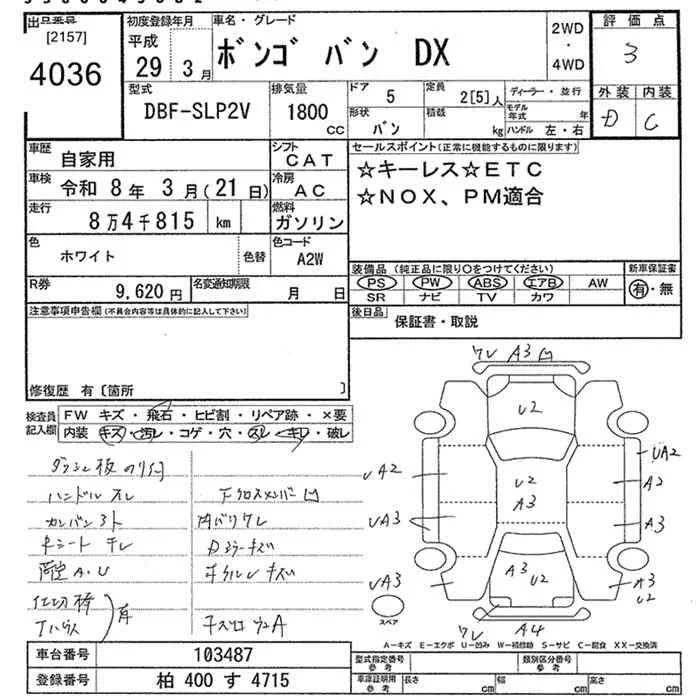 出品番号
[2157]
4036
初度登録年月
平成
29 3月
車名・グレード
ボンゴ バン DX
2WD
・
4WD
評価点
3
型式
DBF-SLP2V
排気量
1800
cc
ドア
5
定員
2[5]人
ディーラー・並行
形状
バン
積載
kg
モデル年式 年
ハンドル 左・右
外装 内装
D C
車歴
自家用
シフト
CAT
セールスポイント(正常に機能するものに限ります)
☆キーレス☆ETC
☆NOX、PM適合
車検
令和 8年 3月(21日)
冷房
AC
走行
8万4千815 km
燃料
ガソリン
色
ホワイト
色替
色コード
A2W
装備品(純正品に限り○をつけてください)
新車保証書
PS PW ABS エアB AW
有・無
SR ナビ TV カワ
R券
9,620円
名変通知期限
月 日
後日品
保証書・取説
注意事項申告欄(不具合内容等は具体的に記入して下さい)
修復歴 有〔箇所 〕
検査員記入欄
FW キズ・飛石・ヒビ割・リペア跡・×要
内装 キズ・汚レ・コゲ・穴・スレ・キレ・破レ
ハンドル スレ
カンバン
シート
A・U
Fクロスメンバー 凹
Dミラーキズ
ホイルレ キズ
有
ワレ A3 凹
U2
UA2
UA2
U2
A3
A2
UA3
A3
UA3
A3
U2
A3
U2
スペア
ワレ A4
A-キズ E-エクボ U-凹み W-補修跡 S-サビ C-腐食 XX-交換済
車台番号
103487
型式指定番号
参考
類別区分番号
参考
登録番号
柏 400 す 4715
車庫証明用
参考
長さ cm 幅 cm 高さ cm